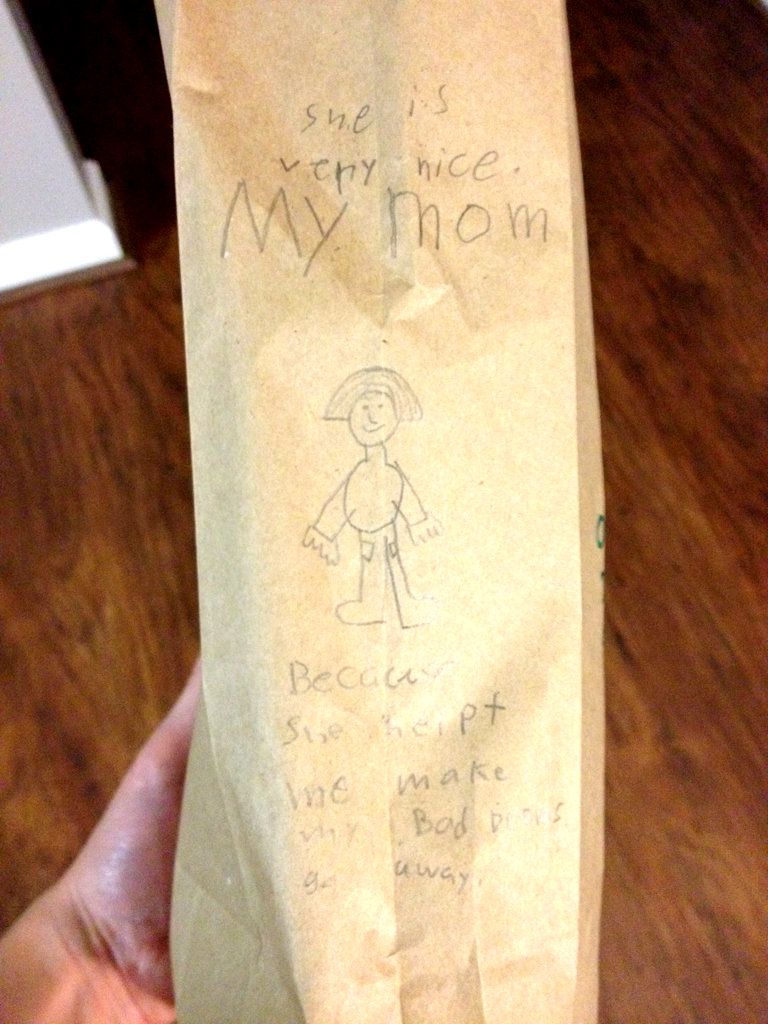 she is
very nice.
My mom
Because
She helpt
me make
my Bad
go away.